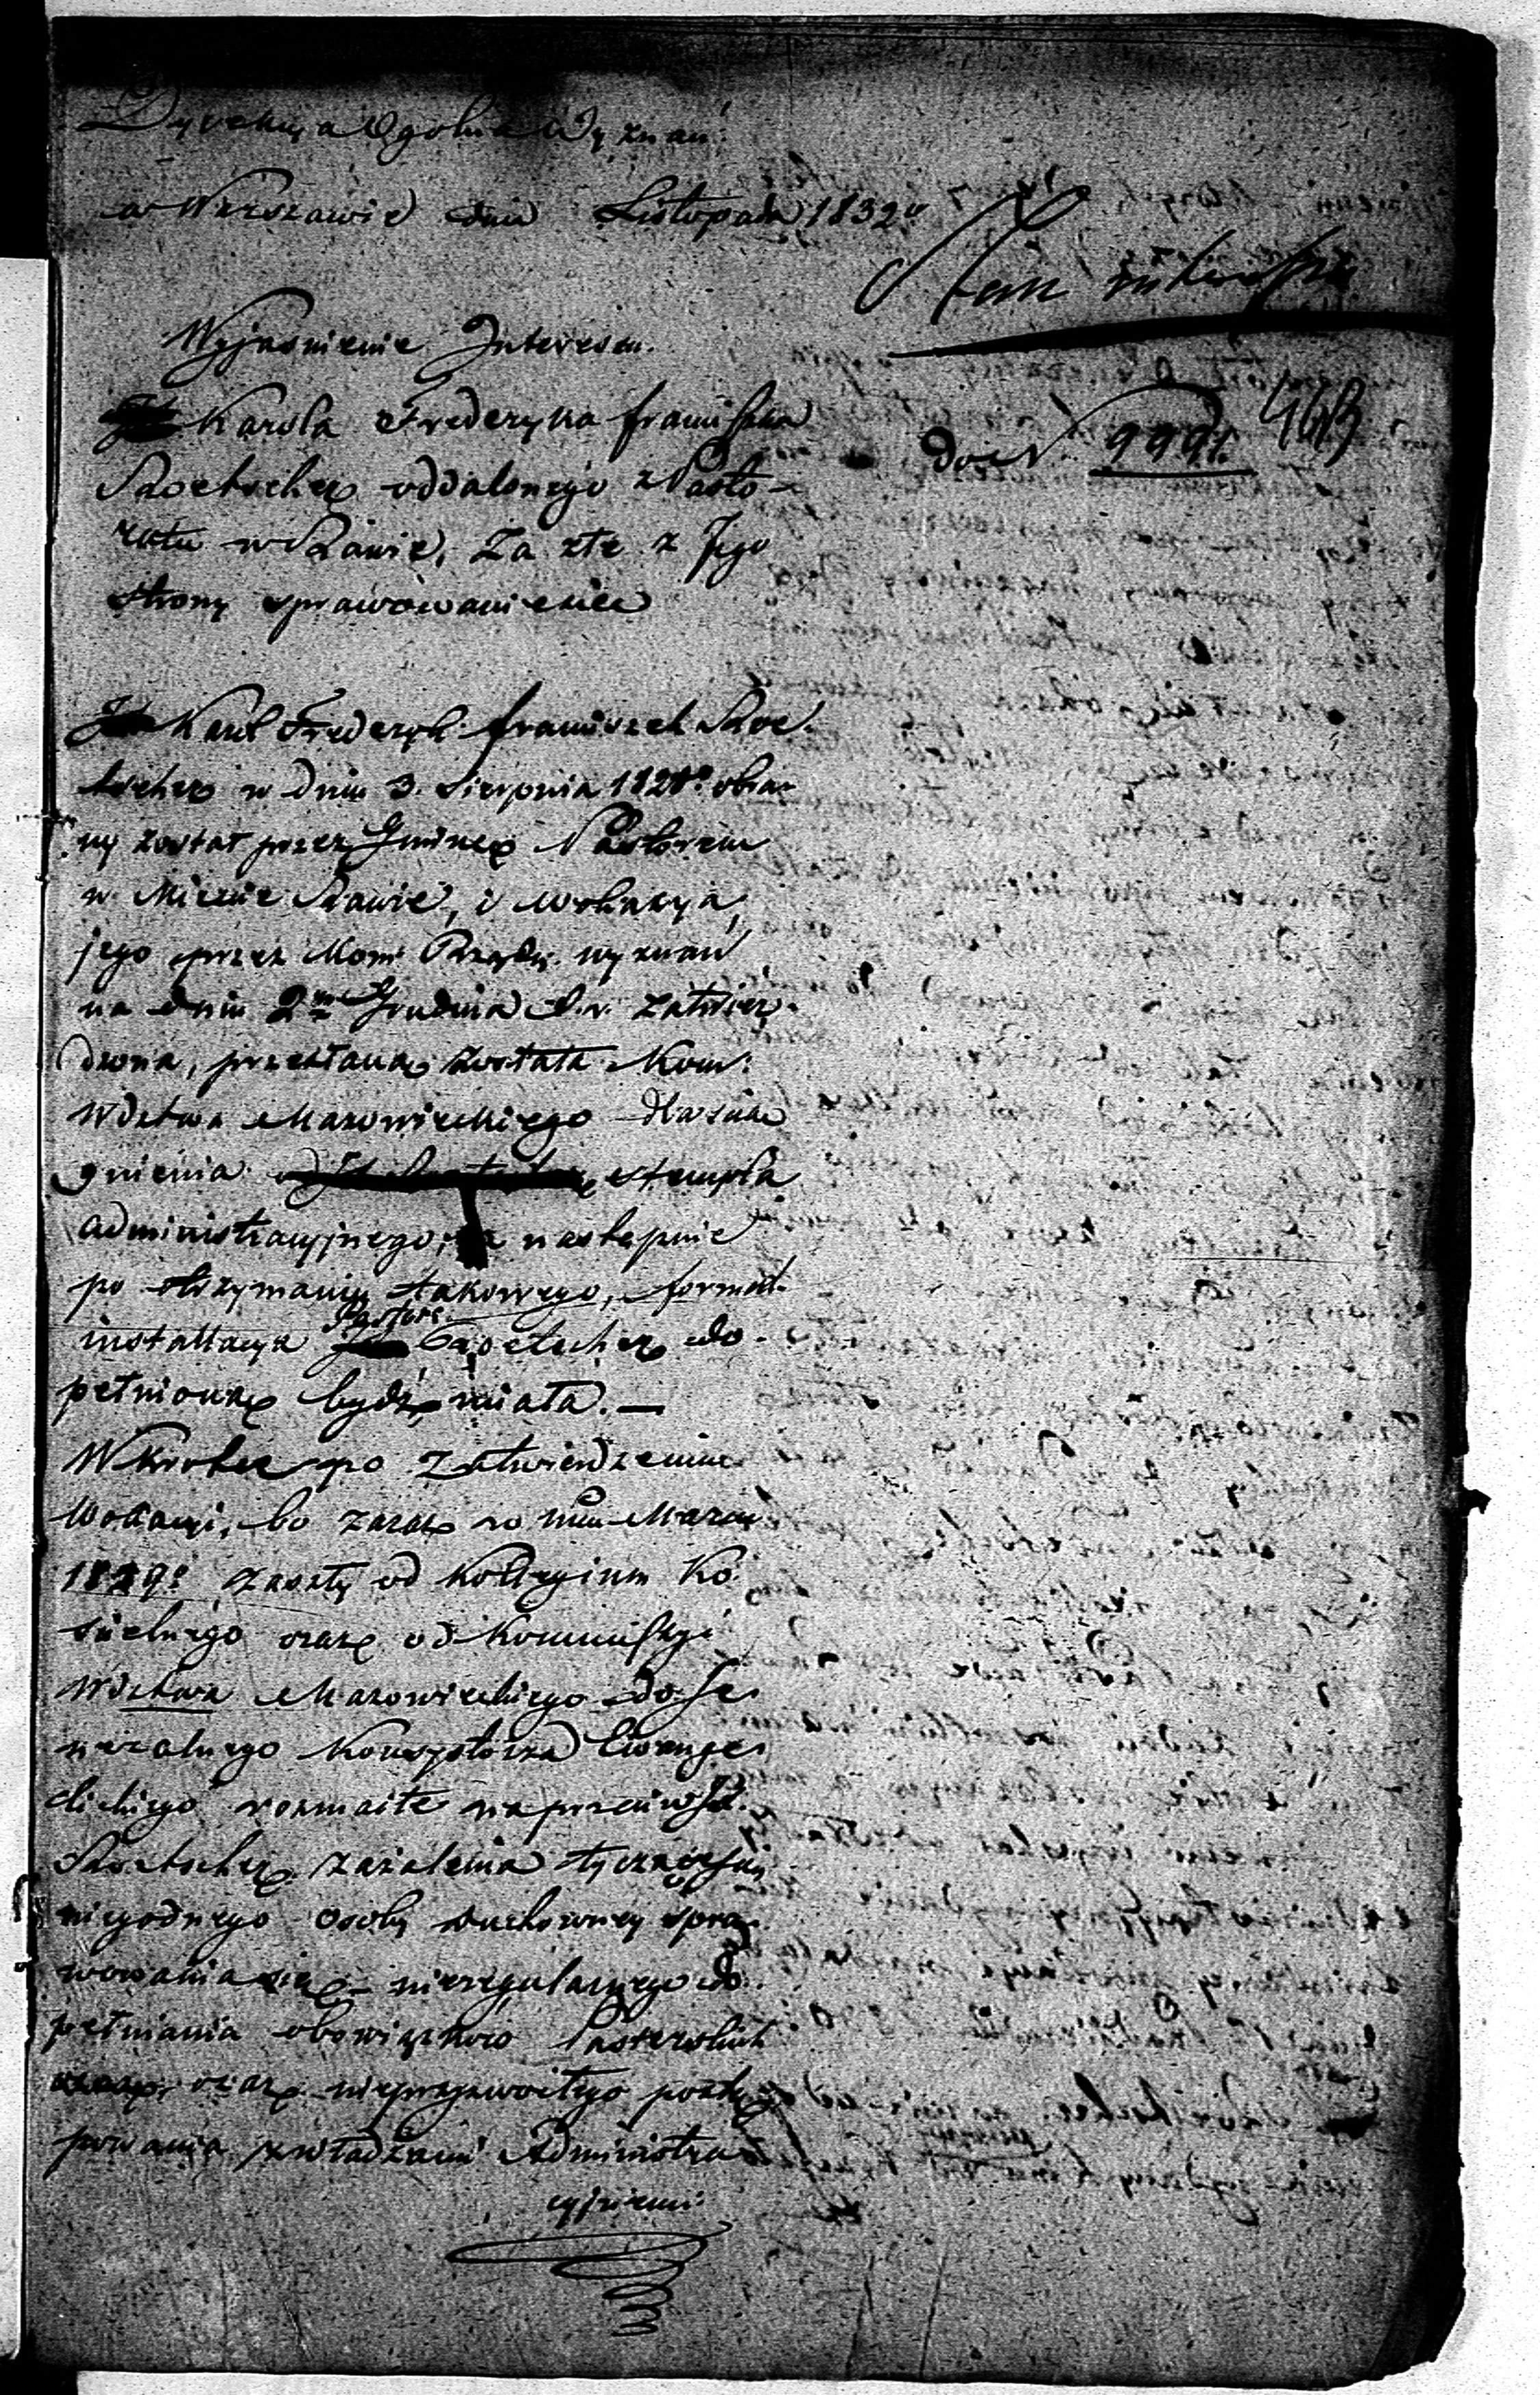 Dyrekcya Ogolna Wyznań
w Warszawie dnia Listopada 1832 r
Stan interesu
Wyjasnienie Interesu.
Karola Fryderyka Franciszka
do N. 9991.
oddalonego z Pasto-
ratu w Rawie, za złe z Jego
strony sprawowanie się
Karol Fryderyk Franciszek
w dniu 3. Sierpnia 1828º obra-
ny został przez Gminę Pastorem
w Miescie Rawie, i wokacya
jego przez Kom: Rządu: wyznań
na dniu 2 Grudnia t. r. zatwier-
dzona, przesłana została Kom:
Wdztwa Mazowieckiego dla ścią
gnienia stempla
administracyjnego, a następnie
po otrzymaniu takowego, formal.
installacya Pastora do-
pełnioną bydź miała. —
Wkrótce po zatwierdzeniu
wokacyi, bo zaraz w mcu Marcu
1829º zaszły od Kollegium Ko-
ścielnego oraz od Kommissyi
Wdztwa Mazowieckiego do Je-
neralnego Konsystorza Ewange-
lickiego rozmaite naprzeciw
zażalenia tyczące się
niegodnego osoby duchowney spra-
wowania się – nieregularnego do-
pełniania obowiązków Pasterskich
oraz nieprzyzwoitego postę-
powania z władzami Administra-
cyjnemi